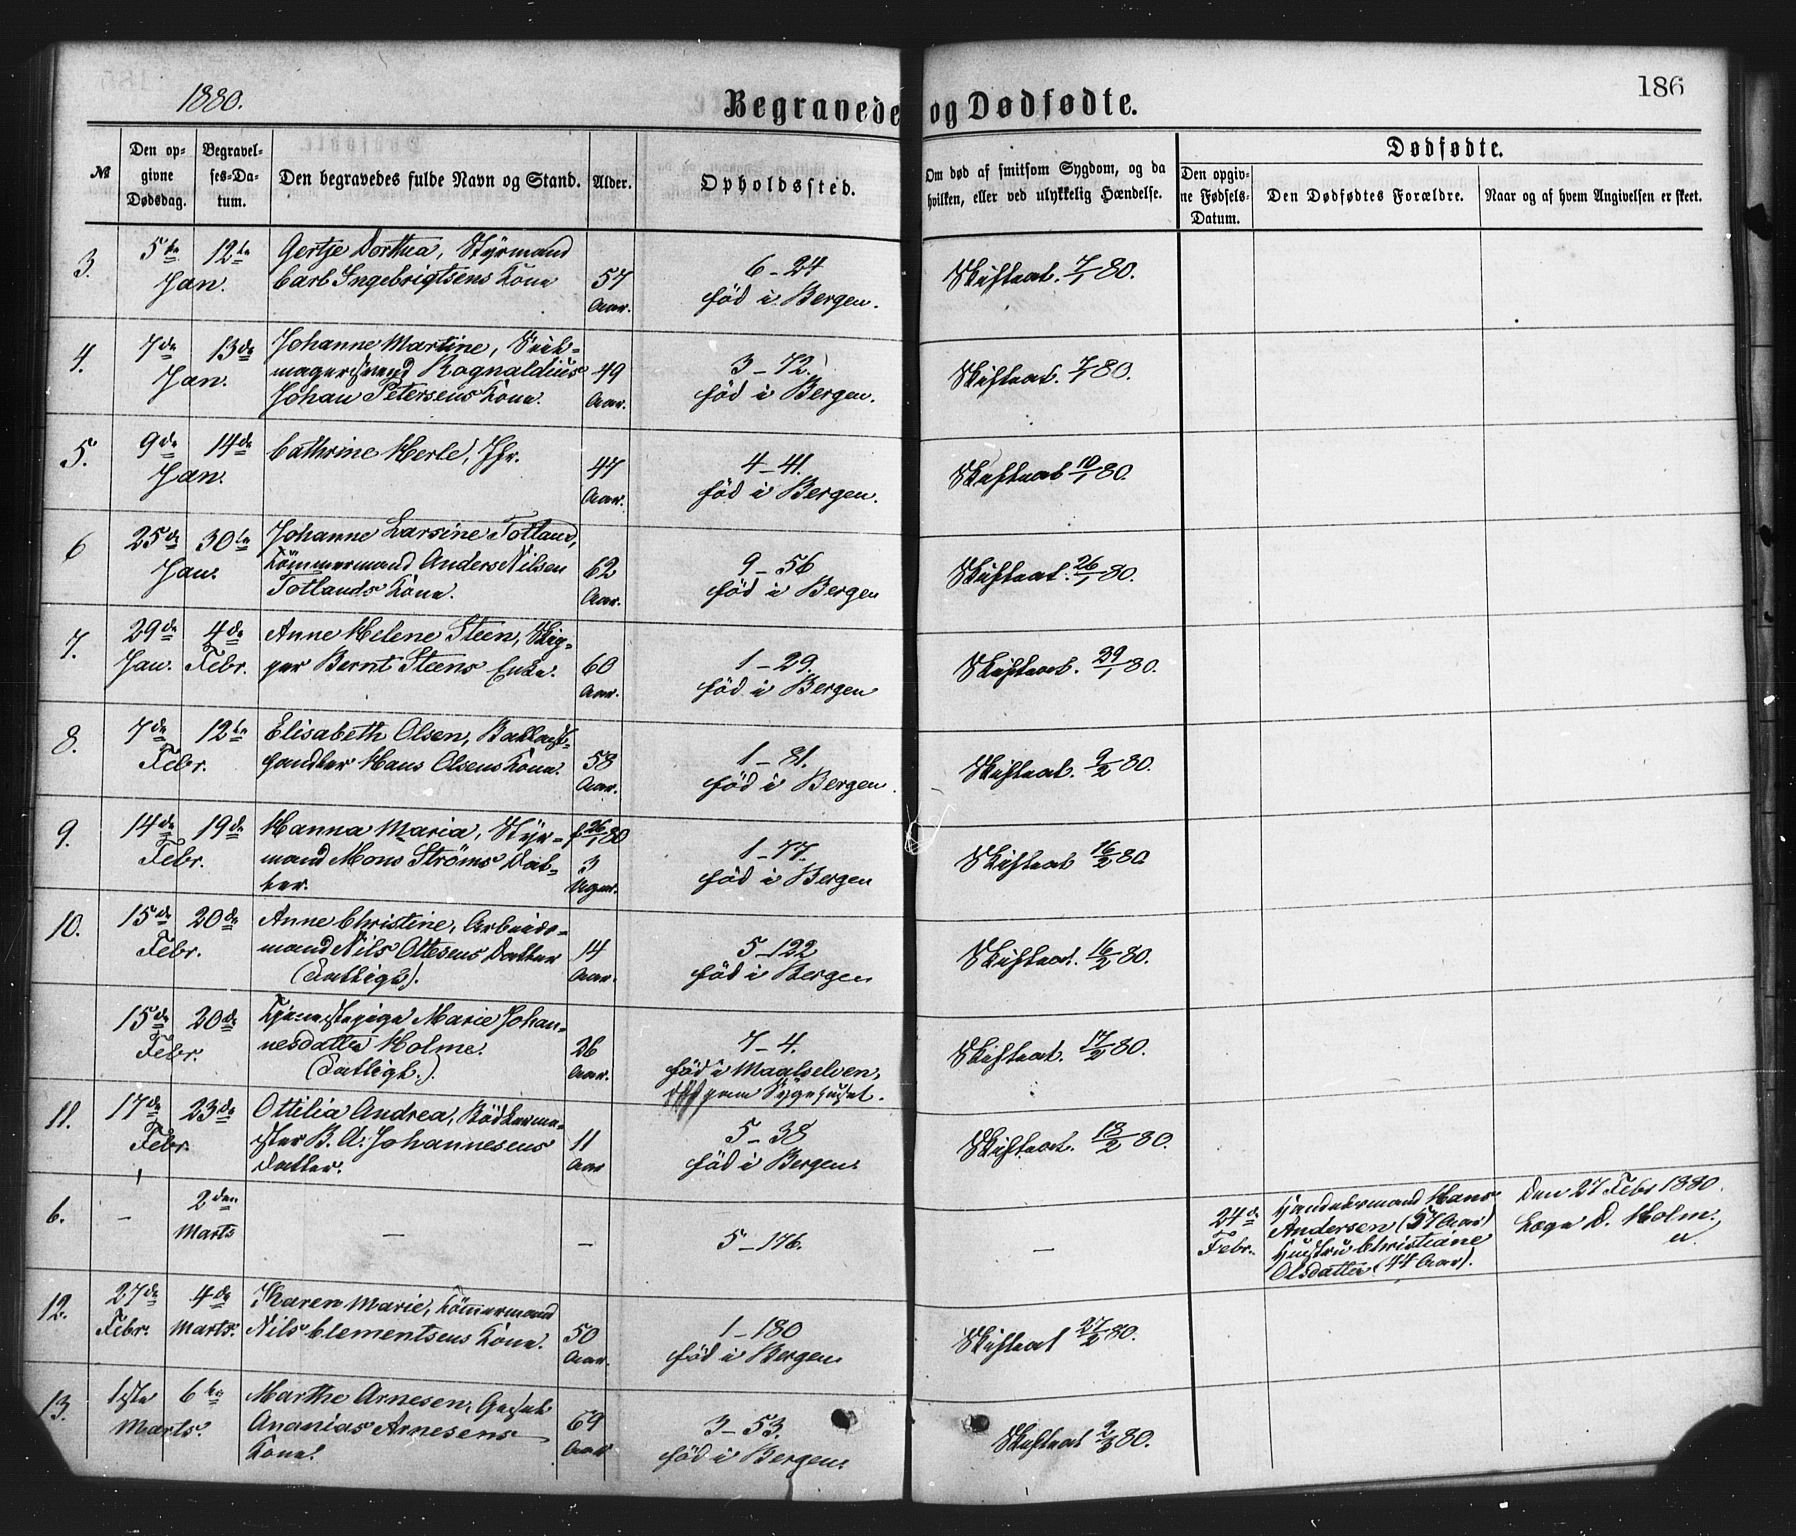 1880.
Begravede og Dødfødte.
186
№
Den op-
givne
Dødsdag.
Begravel-
ses-Da-
tum.
Den begravedes fulde Navn og Stand.
Alder.
Opholdssted.
Om død af smitsom Sygdom, og da
hvilken, eller ved ulykkelig Hændelse.
Dødfødte.
Den opgiv-
ne Fødsels-
Datum.
Den Dødfødtes Forældre.
Naar og af hvem Angivelsen er skeet.
3.
5te
Jan.
12te
Gertje Dorthea, Styrmand
Carl Ingebrigtsens Kone
57
Aar.
6-24
fød i Bergen.
Skifteat. 7/1 80.
4.
7de
Jan.
13de
Johanne Martine,
Rognaldius
Johan Petersens Kone.
49
Aar.
3-72.
fød i Bergen.
Skifteat. 7/1 80.
5.
9de
Jan.
14de
Cathrine Herle, Jfr.
47
Aar.
4-41.
fød i Bergen.
Skifteat 10/1 80.
6
25de
Jan.
30te
Johanne Larsine Totland,
Tömmermand Anders Nilsen
Totlands Kone.
62
Aar.
9-56
fød i Bergen
Skifteat. 26/1 80.
7.
29de
Jan.
4de
Febr.
Anne Helene Steen, Skip-
per Bernt Steens Enke.
60
Aar.
1-29.
fød i Bergen
Skifteat. 29/1 80.
8.
7de
Febr.
12te
Elisabeth Olsen, Ballast-
handler Hans Olsens Kone.
58
Aar.
1-81.
fød i Bergen.
Skifteat. 9/2 80.
9.
14de
Febr.
19de
Hanna Maria, Styr-
mand Mons Strøms Dat-
ter.
f. 26/1 80
3
Uger.
1-77.
fød i Bergen
Skifteat 16/2 80
10.
15de
Febr.
20de
Anne Christine, Arbeids-
mand Nils Ottesens Datter
(Fattigb).
14
Aar.
5-122
fød i Bergen
Skifteat. 16/2 80.
15de
Febr.
20de
Tjenestepige Marie Johan-
nesdatter Holme.
(Fattigb.).
26
Aar.
7-4.
fød i Maalselven,
Sygehuset.
Skifteat. 17/2 80.
11.
17de
Febr.
23de
Ottilia Andrea, Bødkerme-
ster B. A. Johannesens
Datter.
11
Aar
5-38
fød i Bergen.
Skifteat. 18/2 80.
6.
-
2den
Marts
-
-
5-176.
-
24de
Febr.
Handelsmand Hans
Andersen (57 Aar)
Hustru Christiane
Olsdatter (44 Aar).
Den 27 Febr 1880.
Læge D. Holm.
12.
27de
Febr.
4de
Marts.
Karen Marie, Tömmermand
Nils Clementsens Kone.
50
Aar.
1-180
fød i Bergen
Skifteat 27/2 80.
13.
1ste
Marts.
6te
Marthe Arnesen,
Ananias Arnesens
Kone.
69
Aar
3-53.
fød i Bergen.
Skifteat 2/3 80.